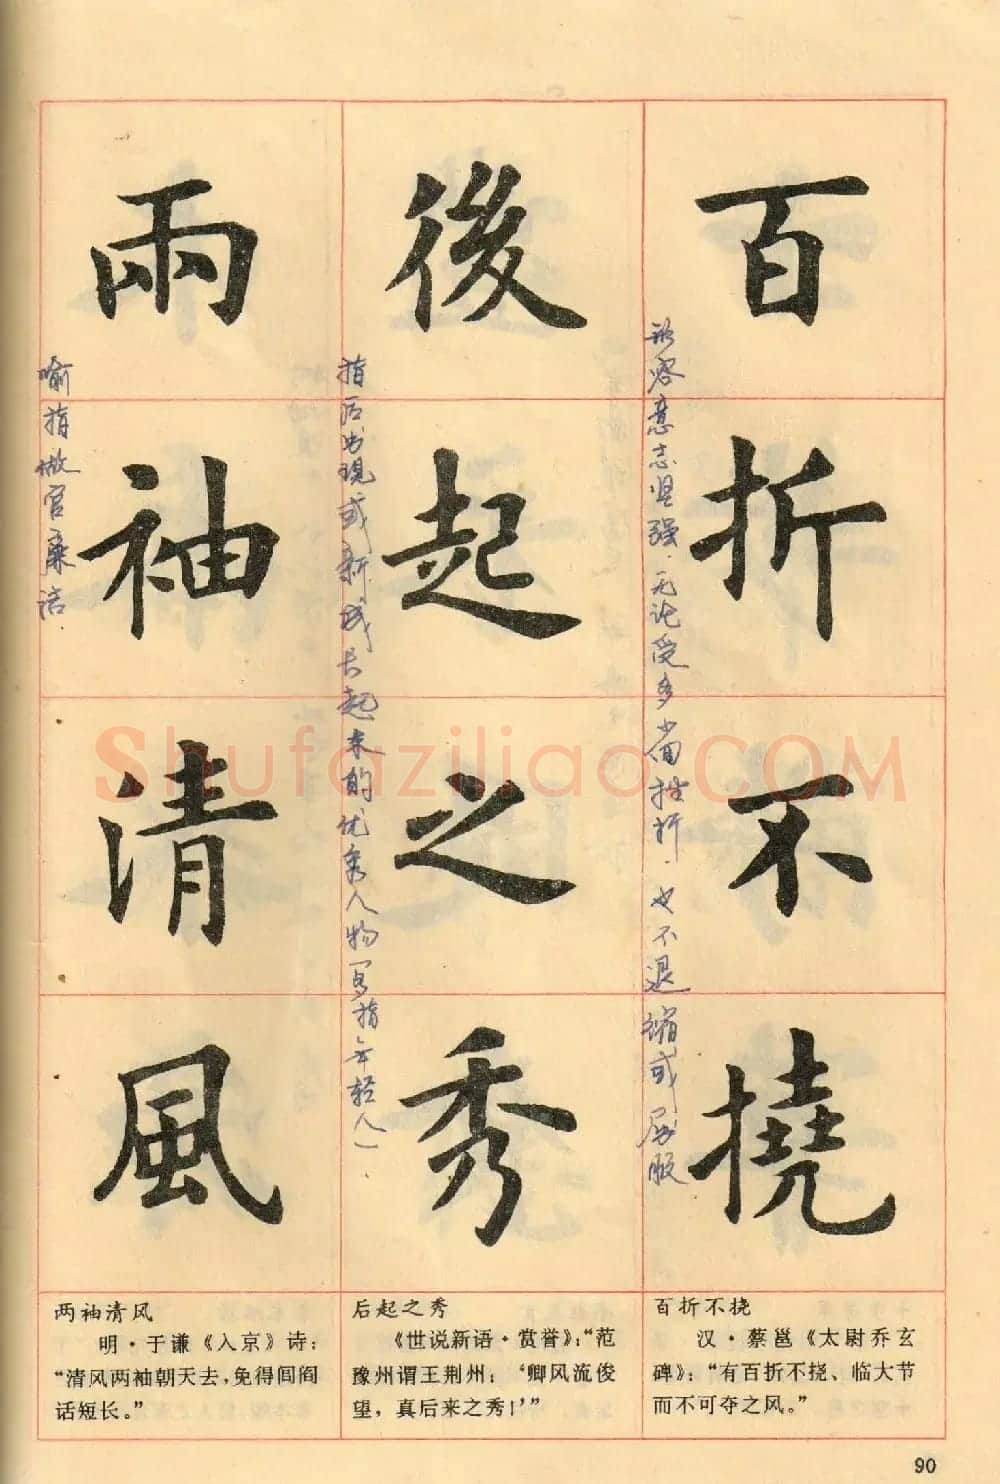 百折不撓
後起之秀
兩袖清風
形容意志坚强.无论受多少回挫折.也不退缩或屈服
指后出现或新成长起来的优秀人物(多指年轻人).
喻指做官廉洁.
ShufaziliaoCOM
两袖清风
明·于谦《入京》诗:
“清风两袖朝天去,免得闾阎
话短长。”
后起之秀
《世说新语·赏誉》:“范
豫州谓王荆州:‘卿风流俊
望,真后来之秀!’”
百折不挠
汉·蔡邕《太尉乔玄
碑》:“有百折不挠、临大节
而不可夺之风。”
90